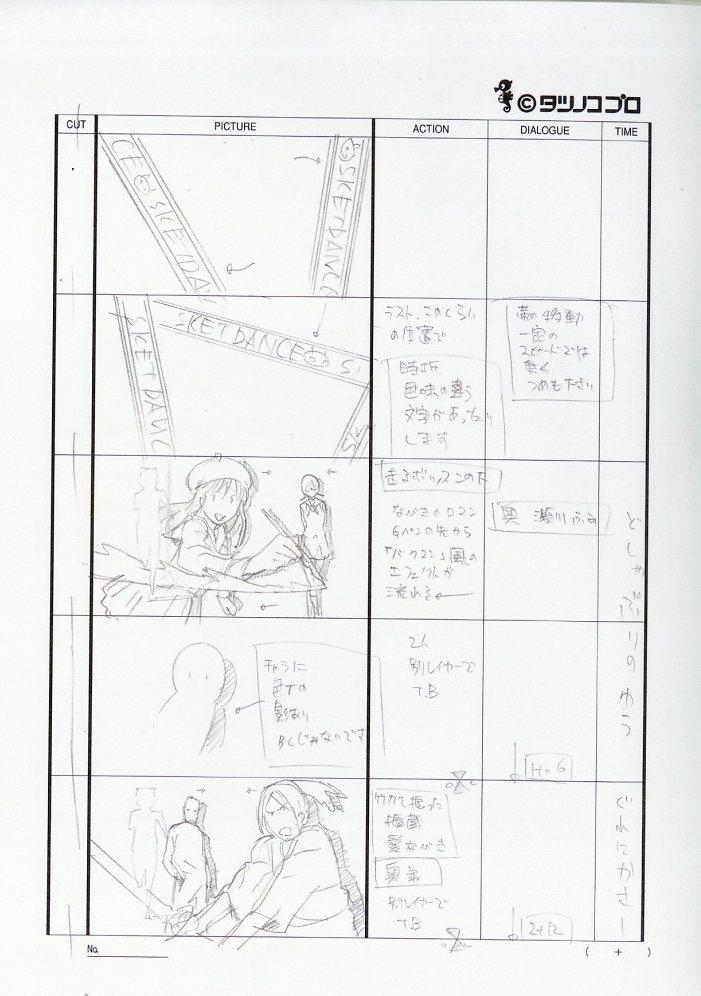 © タツノコプロ
CUT
PICTURE
ACTION
DIALOGUE
TIME
CE
SKETDA
SKETDANCE
SKETDANCE
SKETDANCE
S
SK
ラスト、このくらい
の位置で
時折
色味の違う
文字があったり
します
帯の移動
一定の
スピードでは
無く
つめも下さい
走るボッスンの下
ながきのロマン
Gペンの先から
「バクマン」風の
エフェクトが
流れる
奥
どしゃぶりのゆう
キャラに
色Tの
影あり
BLじゃないです
2人
別レイヤーで
T.B
ぐれにかさー
竹刀を握った
振蔵
髪ながき
奥
別レイヤーで
T.B
2+12
No.
( + )